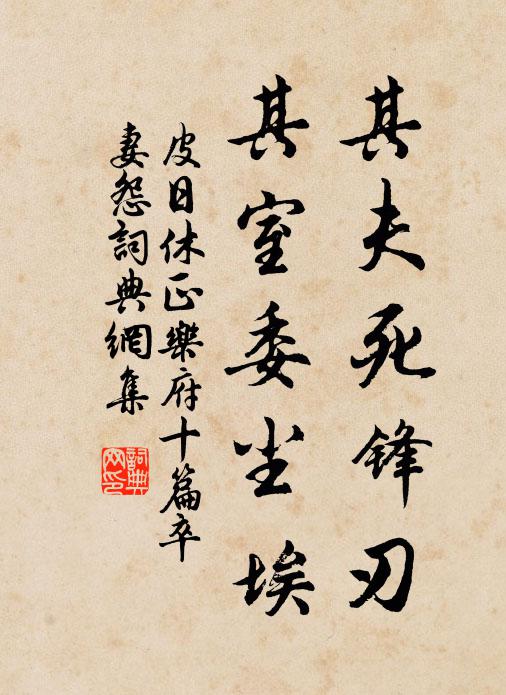 其夫死锋刃
其室委尘埃
皮日休正樂府十篇卒
妻怨詞典網集
詞典網印